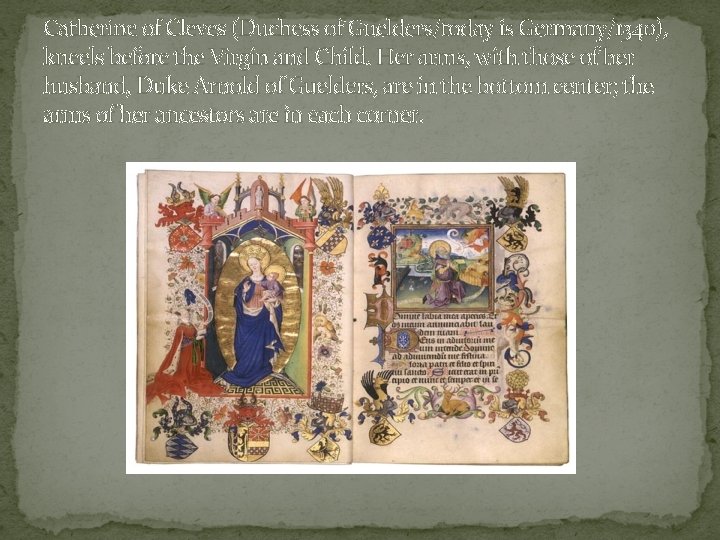 Catherine of Cleves (Duchess of Guelders/today is Germany/1340),
kneels before the Virgin and Child. Her arms, with those of her
husband, Duke Arnold of Guelders, are in the bottom center; the
arms of her ancestors are in each corner.
labia mea aperies. Et
os meum
dem tuam.
in
um intende Domine
ad me festina.
patri et filio et
Sicut erat in pri
cipio et nunc et semper et in se